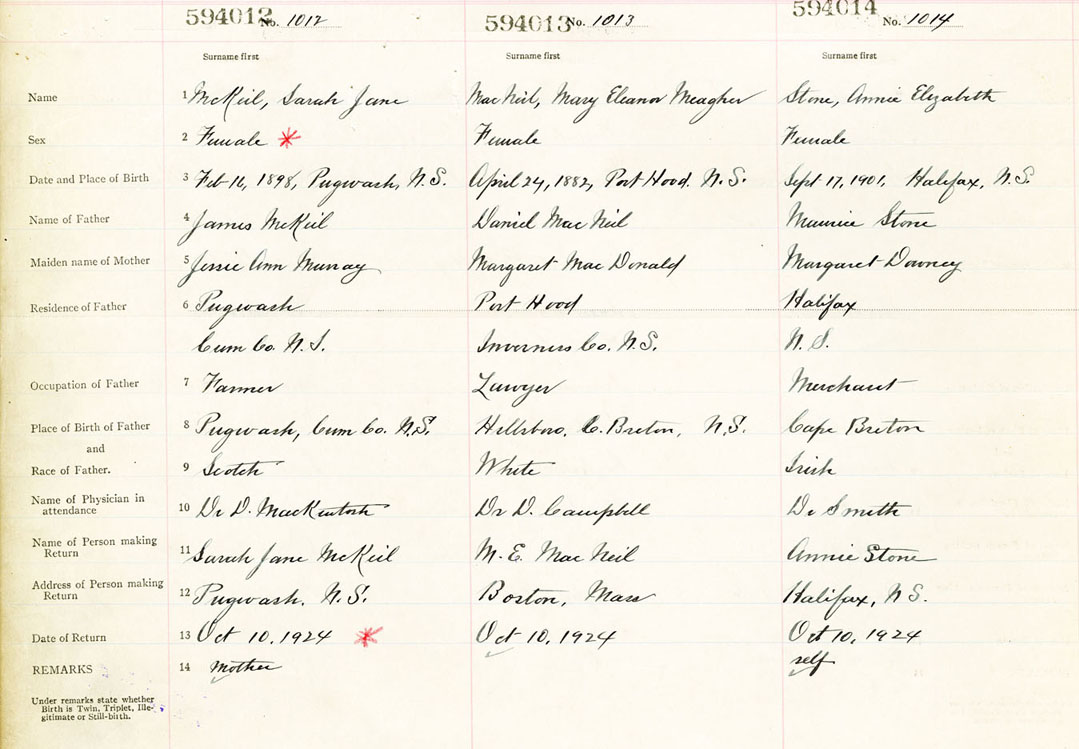 594012 No. 1012 594013 No. 1013 594014 No. 1014
Surname first Surname first Surname first
Name 1 McKeil, Sarah Jane MacNeil, Mary Eleanor Meagher Stone, Annie Elizabeth
Sex 2 Female * Female Female
Date and Place of Birth 3 Feb 16, 1898, Pugwash, N.S. April 24, 1882, Port Hood. N.S. Sept 17, 1901, Halifax, N.S.
Name of Father 4 James McKeil Daniel MacNeil Maurice Stone
Maiden name of Mother 5 Jessie Ann Murray Margaret MacDonald Margaret Downey
Residence of Father 6 Pugwash Port Hood Halifax
Cum Co. N.S. Inverness Co. N.S. N.S.
Occupation of Father 7 Farmer Lawyer Merchant
Place of Birth of Father 8 Pugwash, Cum Co. N.S. Hillsboro, C. Breton, N.S. Cape Breton
and
Race of Father. 9 Scotch White Irish
Name of Physician in
attendance 10 Dr D. MacKintosh Dr D. Campbell Dr Smith
Name of Person making
Return 11 Sarah Jane McKeil M. E. MacNeil Annie Stone
Address of Person making
Return 12 Pugwash, N.S. Boston, Mass Halifax, N.S.
Date of Return 13 Oct 10, 1924 * Oct 10, 1924 Oct 10, 1924
REMARKS 14 mother self
Under remarks state whether
Birth is Twin, Triplet, Ille-
gitimate or Still-birth.